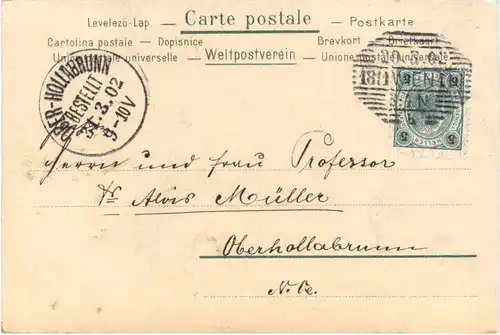 Levelező-Lap. — Carte postale — Postkarte
Cartolina postale — Dopisnice
Brevkort — Briefkaart
Weltpostverein
Union postale universelle
Unione postale universale
OBER-HOLLABRUNN
BESTELLT
31.3.02
9-10V
18/1
5 5
5 5
Herrn und Frau Professor
Dr Alois Müller
Oberhollabrunn
N. Oe.